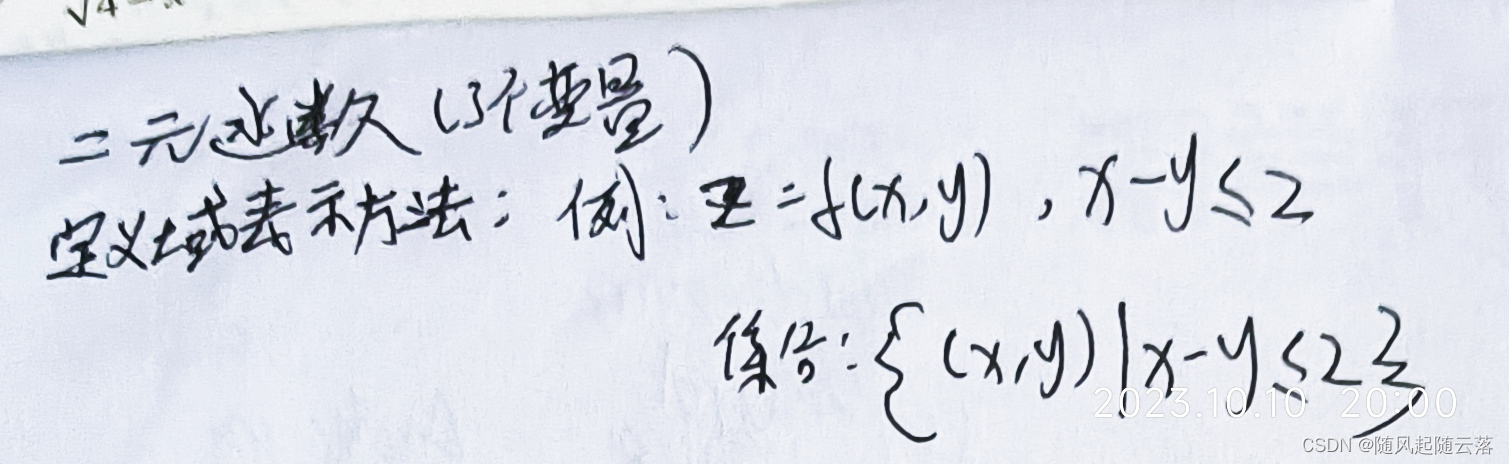 √4-
二元函数(3个变量)
定义域表示方法: 例: z=f(x,y), x-y≤2
集合: {(x,y)|x-y≤2}
2023.10.10 20:00
CSDN @随风起随云落